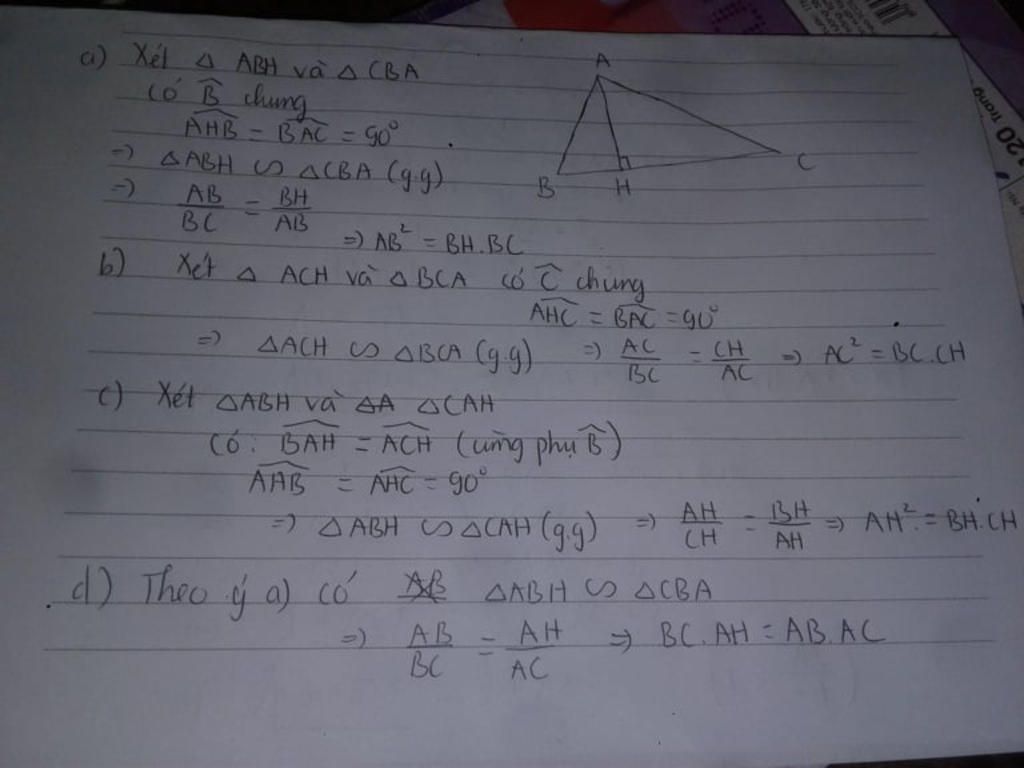 a) Xét △ ABH và △ CBA
A
B
H
C
có B̂ chung
AHB̂ = BAĈ = 90°
=> △ABH ∽ △CBA (g.g)
=> AB/BC = BH/AB => AB² = BH.BC
b) Xét △ ACH và △BCA có Ĉ chung
AHĈ = BAĈ = 90°
=> △ACH ∽ △BCA (g.g) => AC/BC = CH/AC => AC² = BC.CH
c) Xét △ABH và △CAH
Có: BAĤ = ACĤ (cùng phụ B̂)
AHB̂ = AHĈ = 90°
=> △ABH ∽ △CAH (g.g) => AH/CH = BH/AH => AH² = BH.CH
d) Theo ý a) có △ABH ∽ △CBA
=> AB/BC = AH/AC => BC.AH = AB.AC
20 Trong